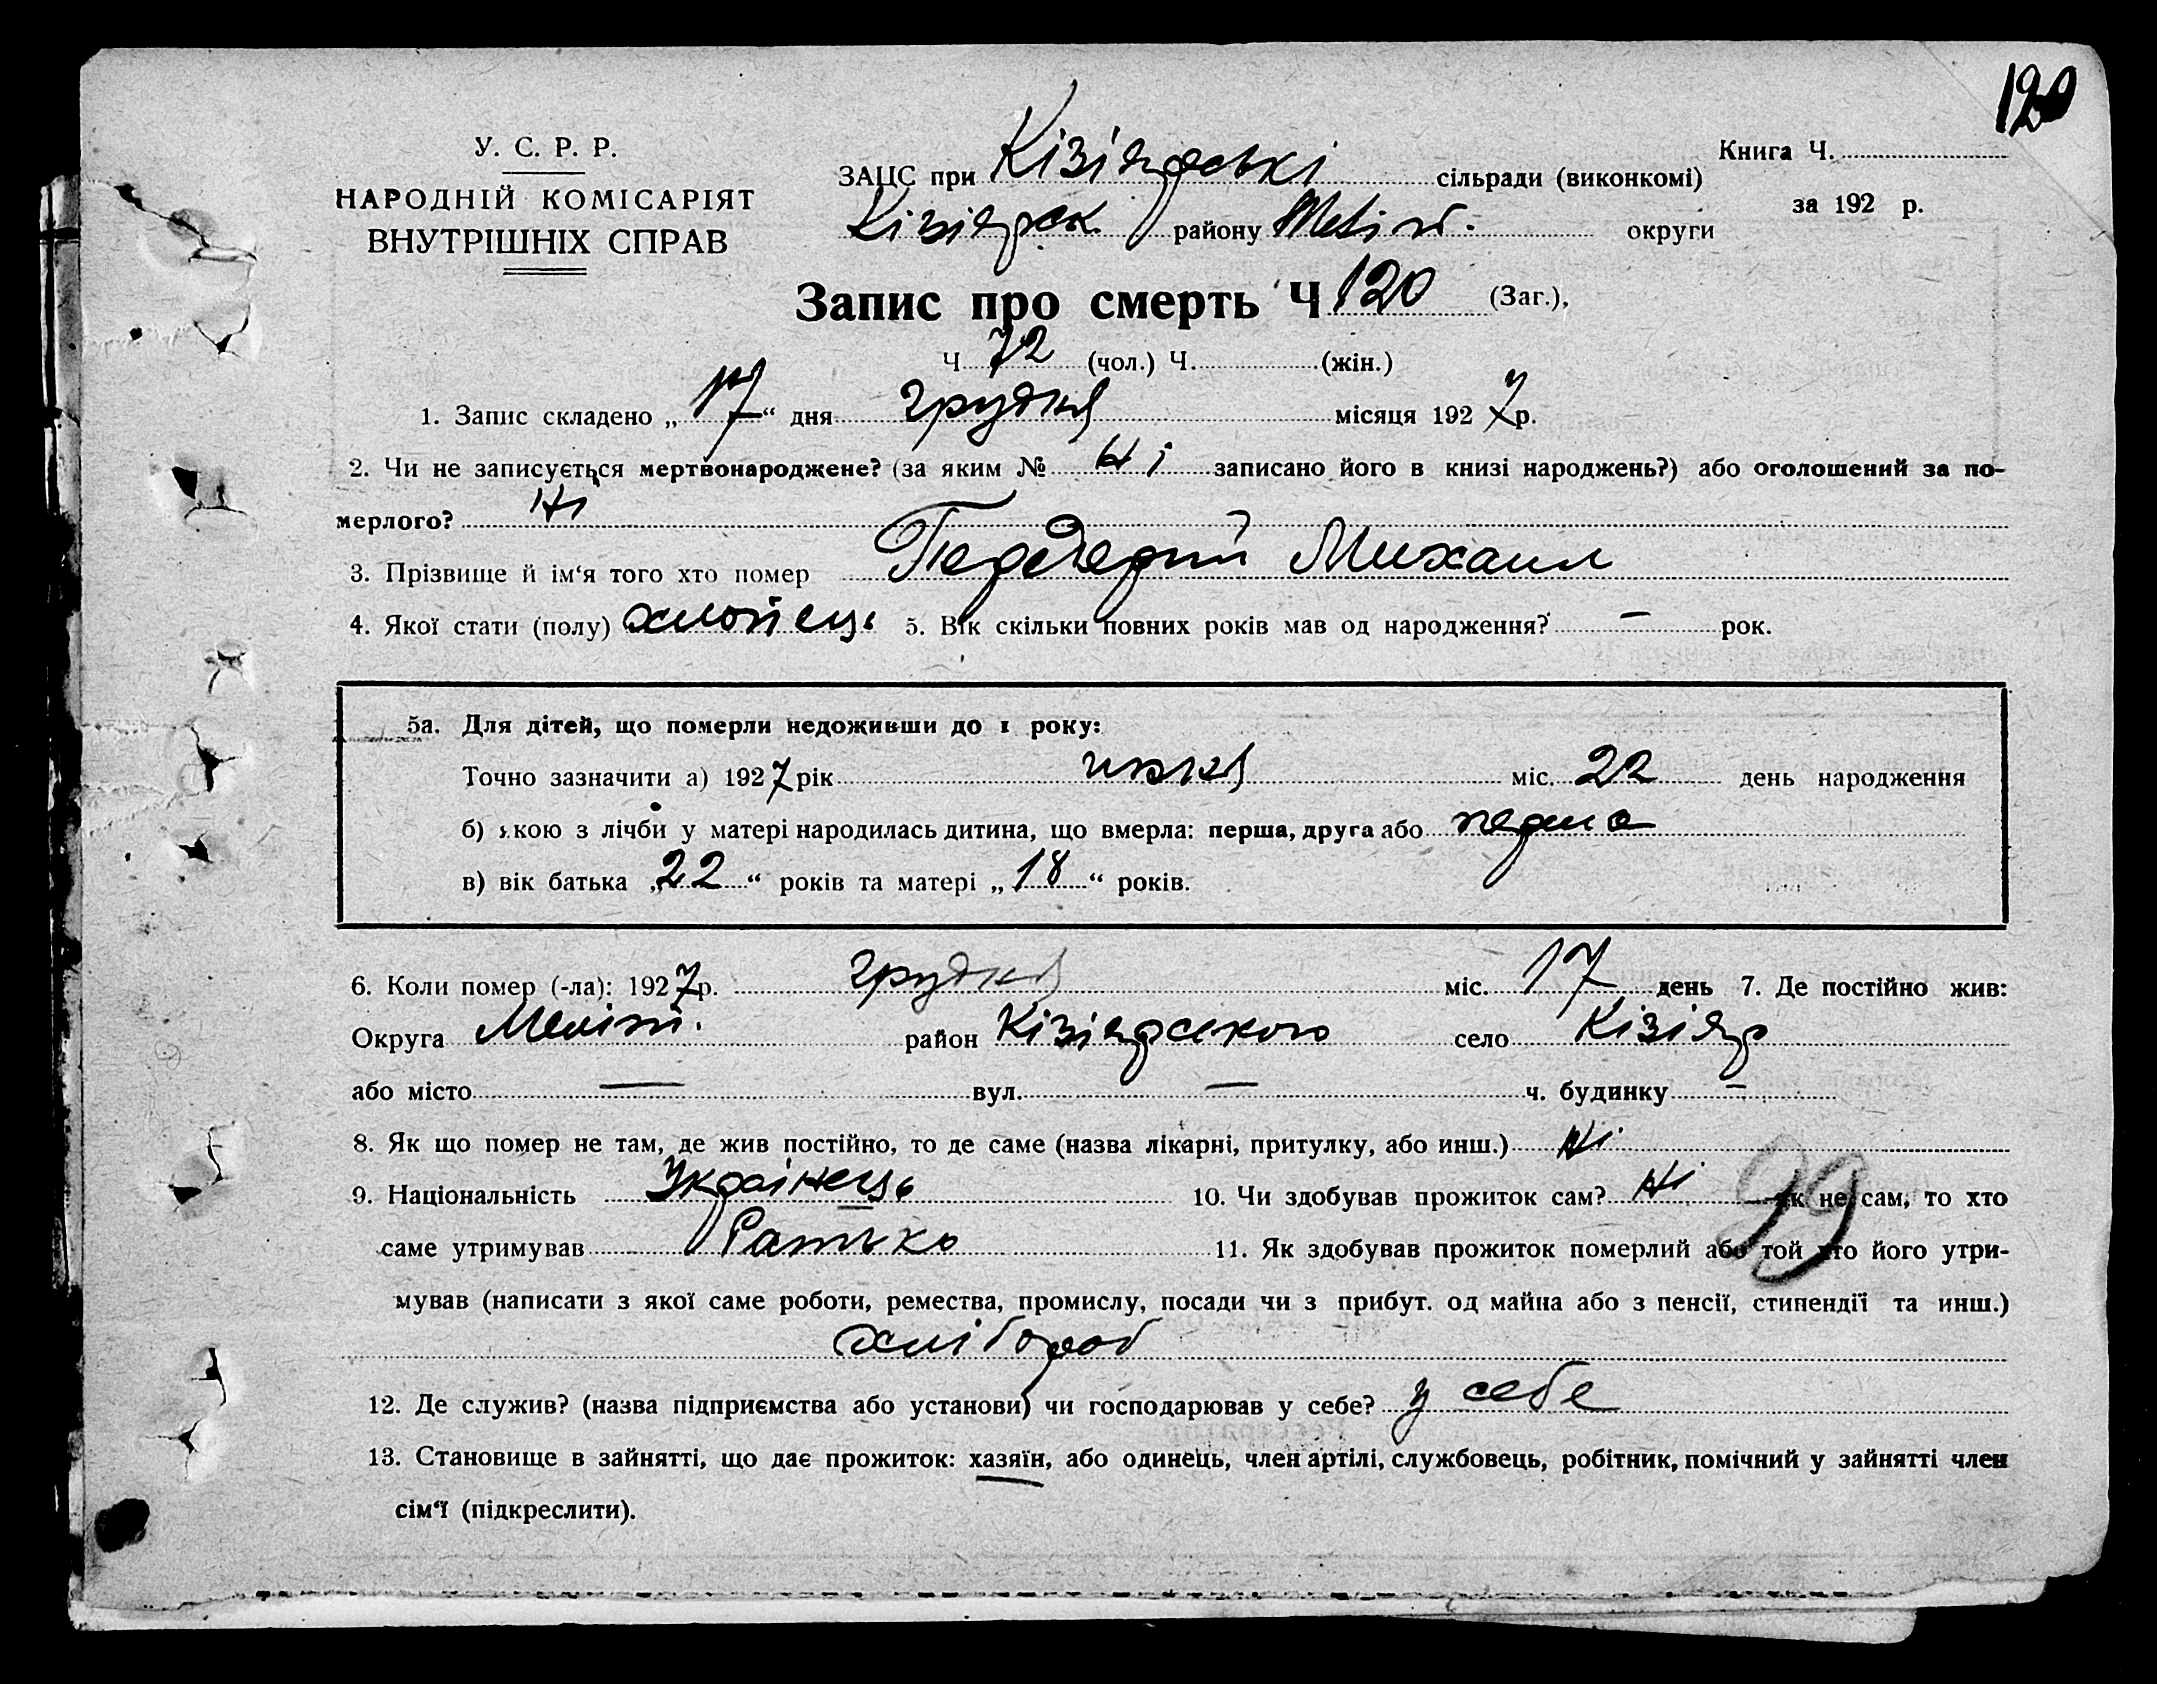 120
У. С. Р. Р.
НАРОДНІЙ КОМІСАРІЯТ
ВНУТРІШНІХ СПРАВ
ЗАЦС при Кізіярські сільради (виконкомі)
Кізіярск району Меліт. округи
Книга Ч.
за 192 р.
Запис про смерть Ч 120 (Заг.),
Ч 72 (чол.) Ч. (жін.)
1. Запис складено „17“ дня грудня місяця 1927 р.
2. Чи не записується мертвонароджене? (за яким № Ні записано його в книзі народжень?) або оголошений за по-
мерлого? Ні
3. Прізвище й ім'я того хто помер Михаил
4. Якої стати (полу) хлопець 5. Вік скільки повних років мав од народження? — рок.
5а. Для дітей, що померли недоживши до 1 року:
Точно зазначити а) 1927 рік міс. 22 день народження
б) якою з лічби у матері народилась дитина, що вмерла: перша, друга або перша
в) вік батька „22“ років та матері „18“ років.
6. Коли помер (-ла): 1927 р. грудня міс. 17 день 7. Де постійно жив:
Округа Меліт. район Кізіярського село Кізіяр
або місто — вул. — ч. будинку —
8. Як що помер не там, де жив постійно, то де саме (назва лікарні, притулку, або инш.) Ні
9. Національність Українець 10. Чи здобував прожиток сам? Ні як не сам, то хто
саме утримував Батько 11. Як здобував прожиток померлий або той хто його утри-
мував (написати з якої саме роботи, ремества, промислу, посади чи з прибут. од майна або з пенсії, стипендії та инш.)
хлібороб
99
12. Де служив? (назва підприємства або установи) чи господарював у себе? у себе
13. Становище в зайнятті, що дає прожиток: хазяїн, або одинець, член артілі, службовець, робітник, помічний у зайнятті член
сім'ї (підкреслити).